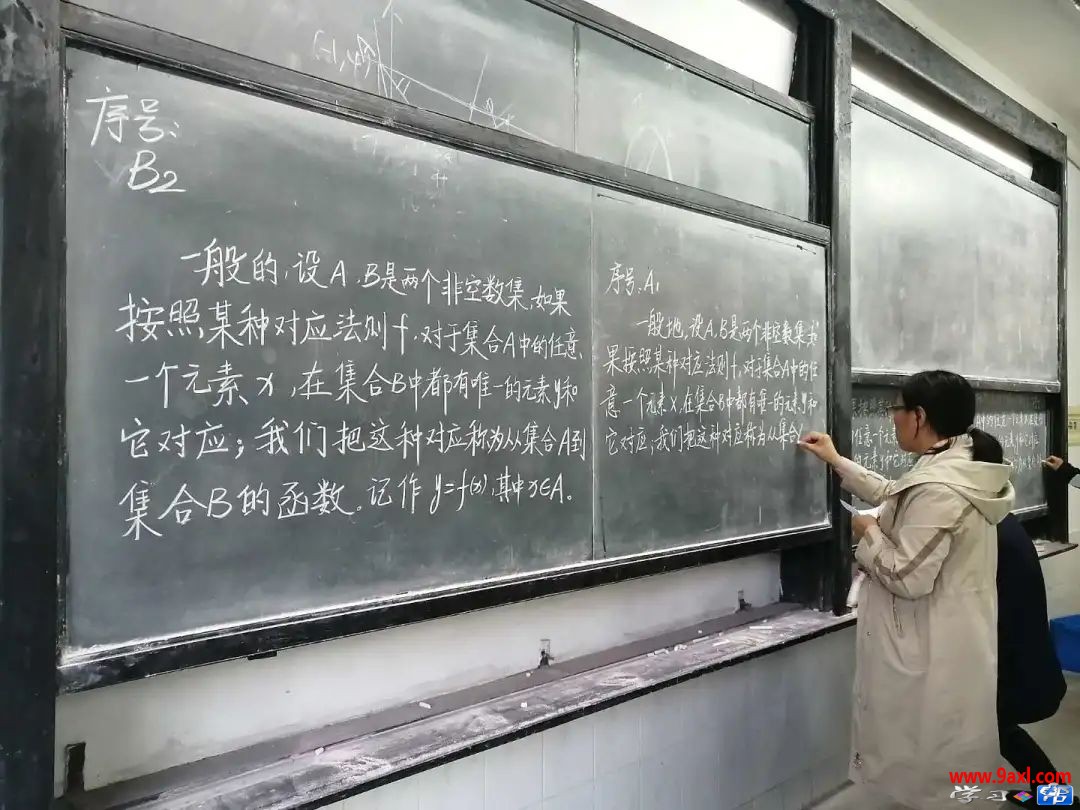 序号:
B2
一般的,设A、B是两个非空数集,如果
按照某种对应法则f,对于集合A中的任意
一个元素x,在集合B中都有唯一的元素y和
它对应;我们把这种对应称为从集合A到
集合B的函数。记作 y=f(x),其中x∈A。
序号:A1
一般地,设A、B是两个非空数集,如
果按照某种对应法则f,对于集合A中的任
意一个元素x,在集合B中都有唯一的元素y和
它对应,我们把这种对应称为从集合
www.9axl.com
学习